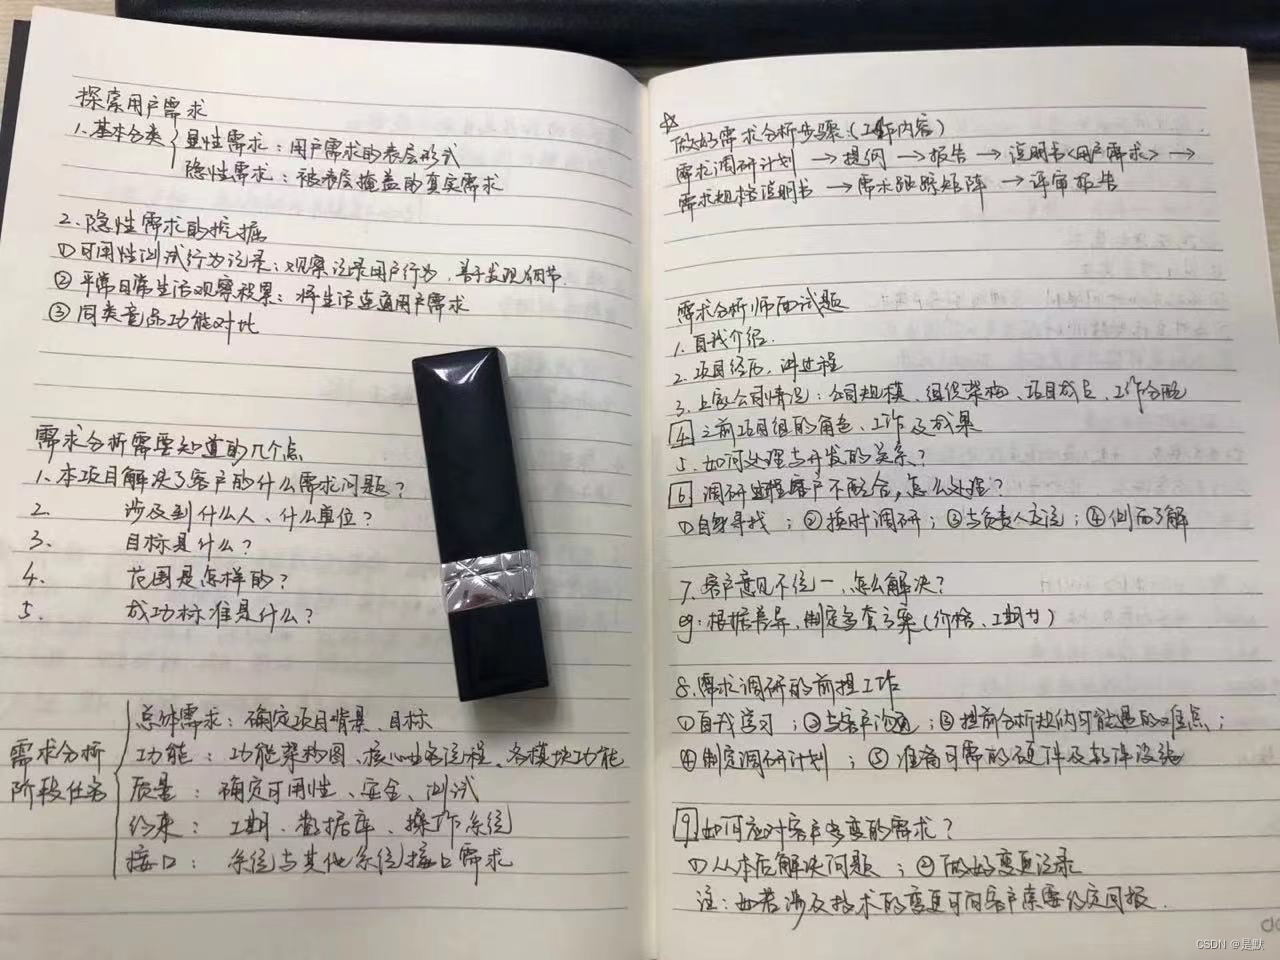 探索用户需求
1.基本分类 显性需求：用户需求的表层形式
隐性需求：被表层掩盖的真实需求
2.隐性需求的挖掘
①可用性测试行为记录：观察记录用户行为，善于发现细节.
②平常日常生活观察积累：将生活连通用户需求
③同类竞品功能对比
需求分析需要知道的几个点
1.本项目解决了客户的什么需求问题？
2. 涉及到什么人、什么单位？
3. 目标是什么？
4. 范围是怎样的？
5. 成功标准是什么？
需求分析阶段任务
总体需求：确定项目背景、目标
功能：功能架构图、核心业务流程、各模块功能
质量：确定可用性、安全、测试
约束：工期、数据库、操作系统
接口：系统与其他系统接口需求
☆
做好需求分析步骤(工作内容)
需求调研计划→提纲→报告→说明书<用户需求>→
需求规格说明书→需求跟踪矩阵→评审报告
需求分析师面试题
1.自我介绍.
2.项目经历，讲过程
3.上家公司情况：公司规模、组织架构、项目成员、工作分配
4 之前项目组的角色、工作及成果
5.如何处理与开发的关系？
6 调研过程客户不配合，怎么处理？
①自身寻找；②按时调研；③与负责人交流；④侧面了解
7.客户意见不统一，怎么解决？
eg：根据差异、制定多套方案(价格、工期等)
8.需求调研的前提工作
①自我学习；②与客户沟通；③提前分析规纳可能遇的难点；
④制定调研计划；⑤准备可需的硬件及软件设施
9 如何应对客户多变的需求？
①从本后解决问题；②做好变更记录
注：如若涉及技术的变更可向客户索要约定回报.
CSDN @是默